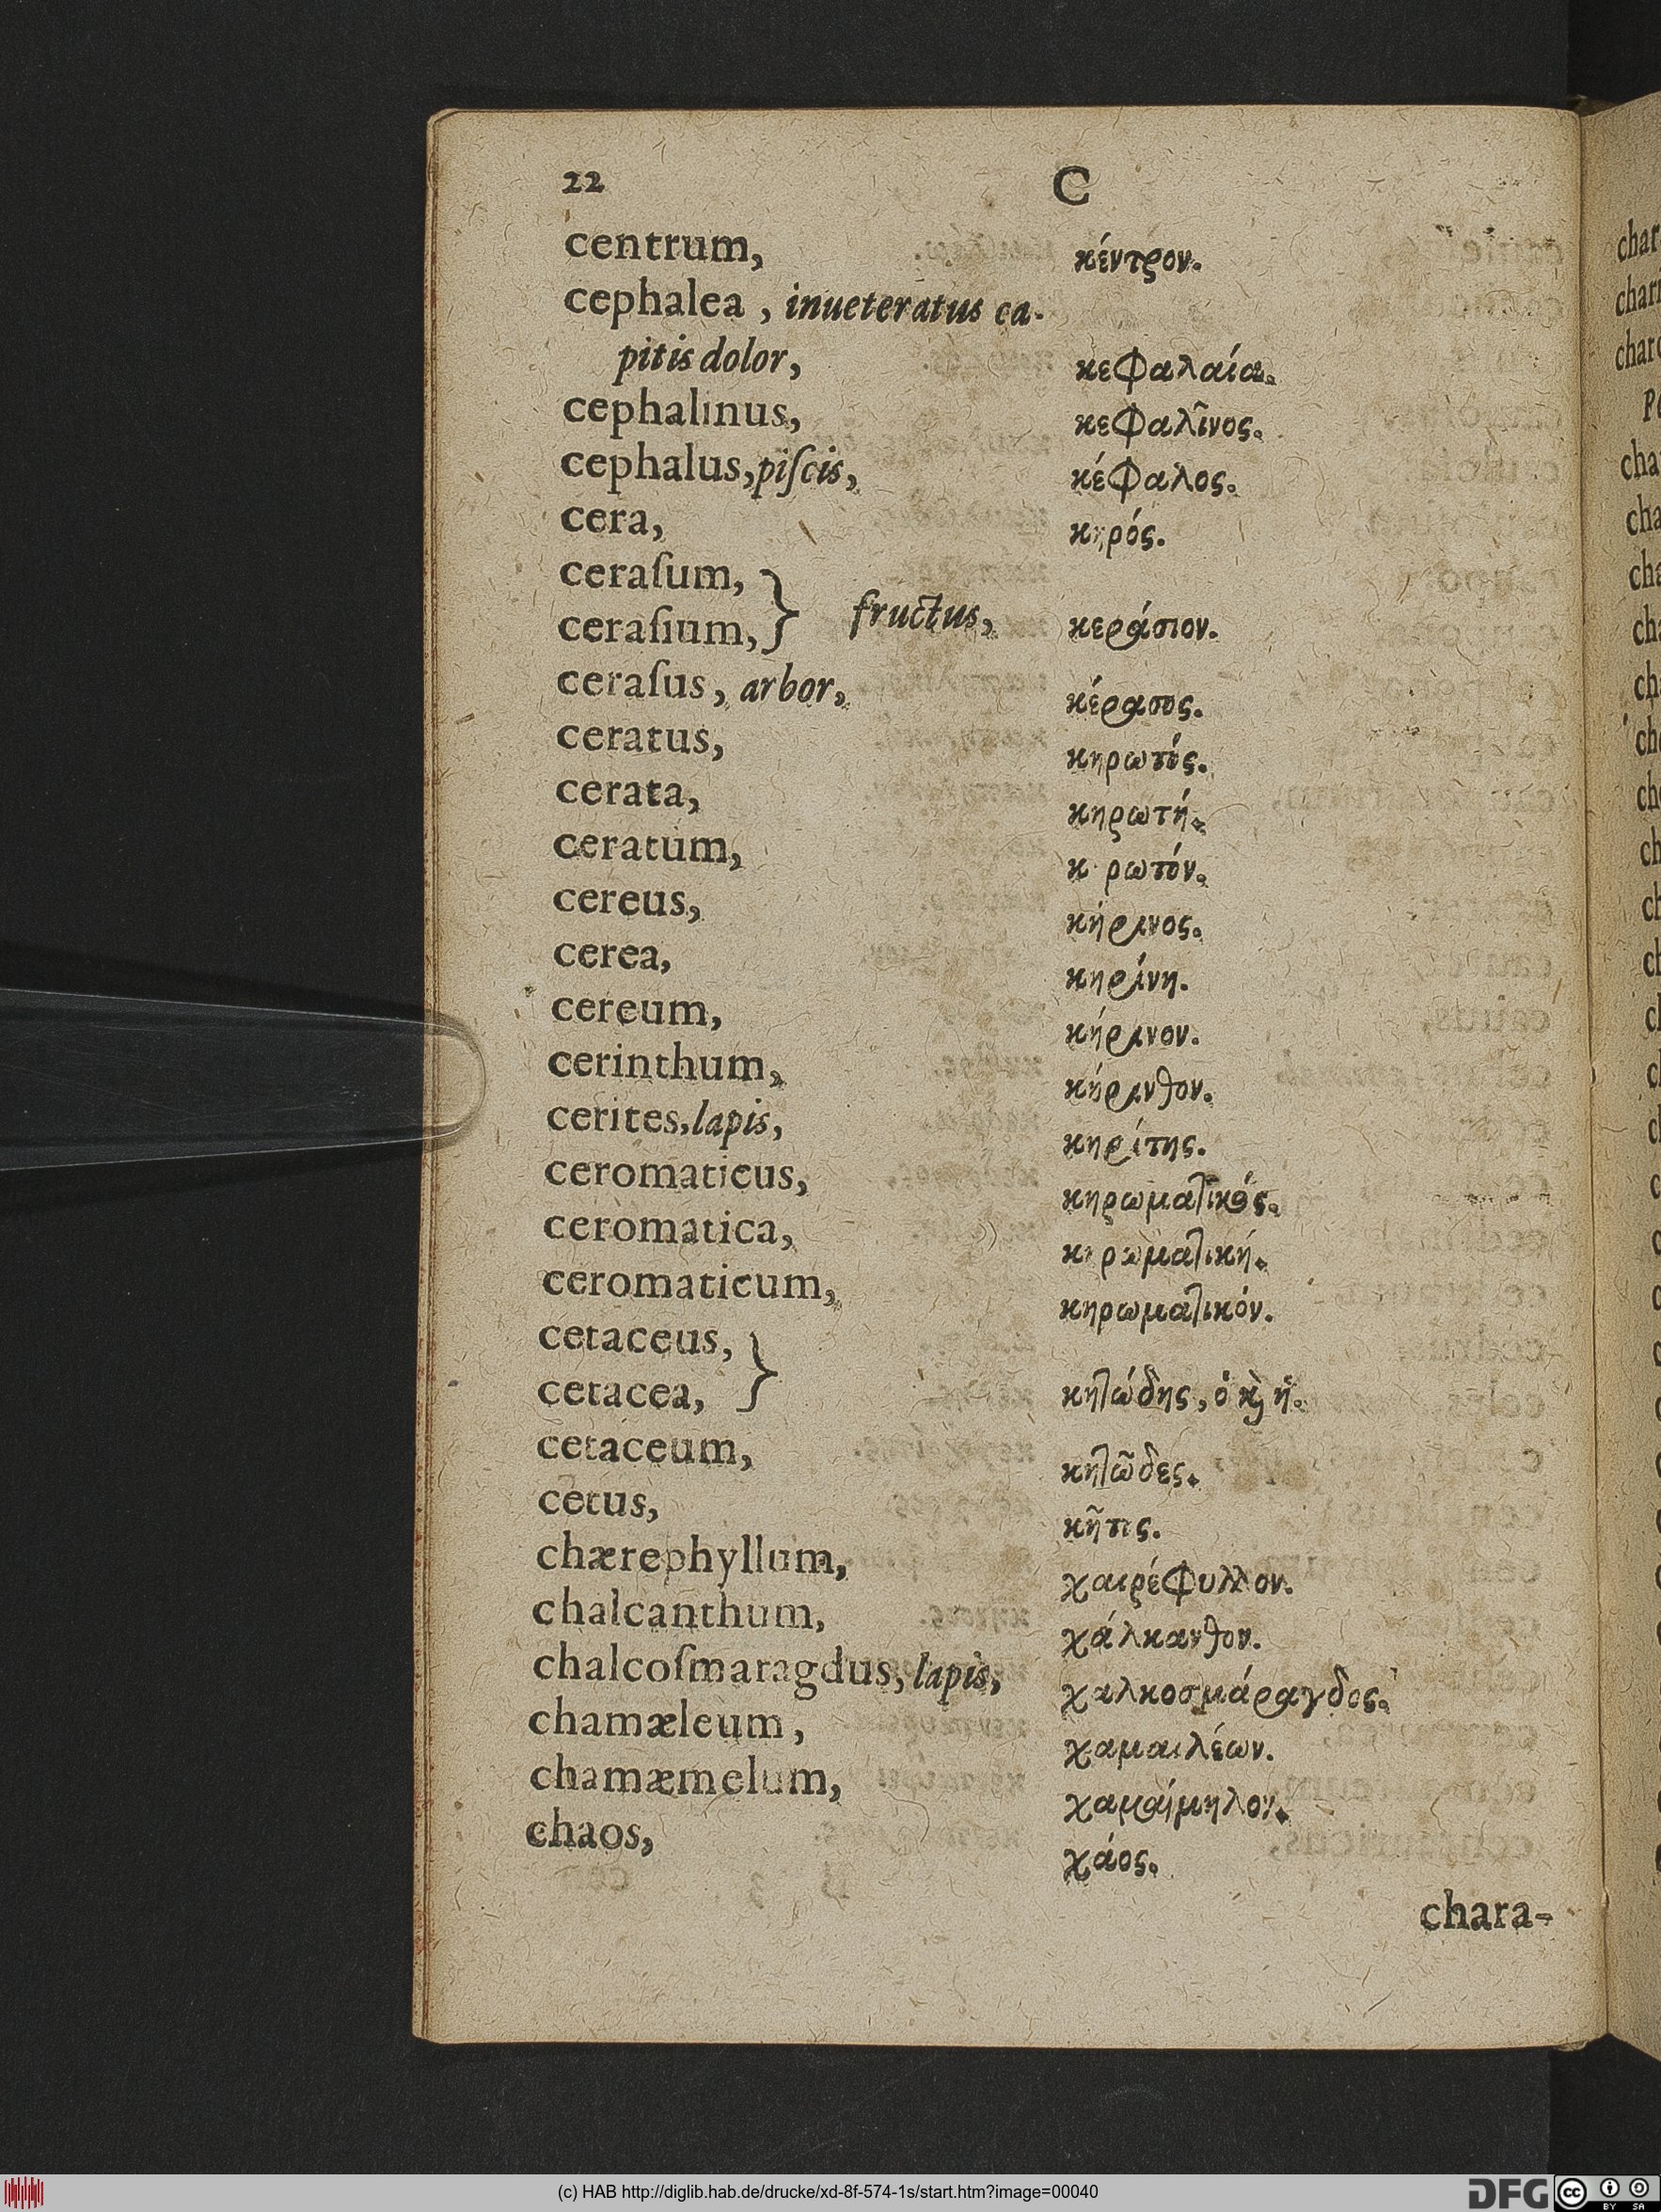 22 C
centrum, κέντρον.
cephalea, inueteratus ca-
pitis dolor, κεφαλαία.
cephalinus, κεφαλῖνος.
cephalus, piſcis, κέφαλος.
cera, κηρός.
ceraſum,
ceraſium, } fructus, κεράσιον.
ceraſus, arbor, κέρασος.
ceratus, κηρωτός.
cerata, κηρωτή.
ceratum, κηρωτόν.
cereus, κήρινος.
cerea, κηρίνη.
cereum, κήρινον.
cerinthum, κήρινθον.
cerites, lapis, κηρίτης.
ceromaticus, κηρωματικός.
ceromatica, κηρωματική.
ceromaticum, κηρωματικόν.
cetaceus,
cetacea, } κητώδης, ὁ καὶ ἡ.
cetaceum, κητῶδες.
cetus, κῆτος.
chærephyllum, χαιρέφυλλον.
chalcanthum, χάλκανθον.
chalcoſmaragdus, lapis, χαλκοσμάραγδος.
chamæleum, χαμαιλέων.
chamæmelum, χαμαίμηλον.
chaos, χάος.
chara-
(c) HAB http://diglib.hab.de/drucke/xd-8f-574-1s/start.htm?image=00040
DFG
cc BY SA